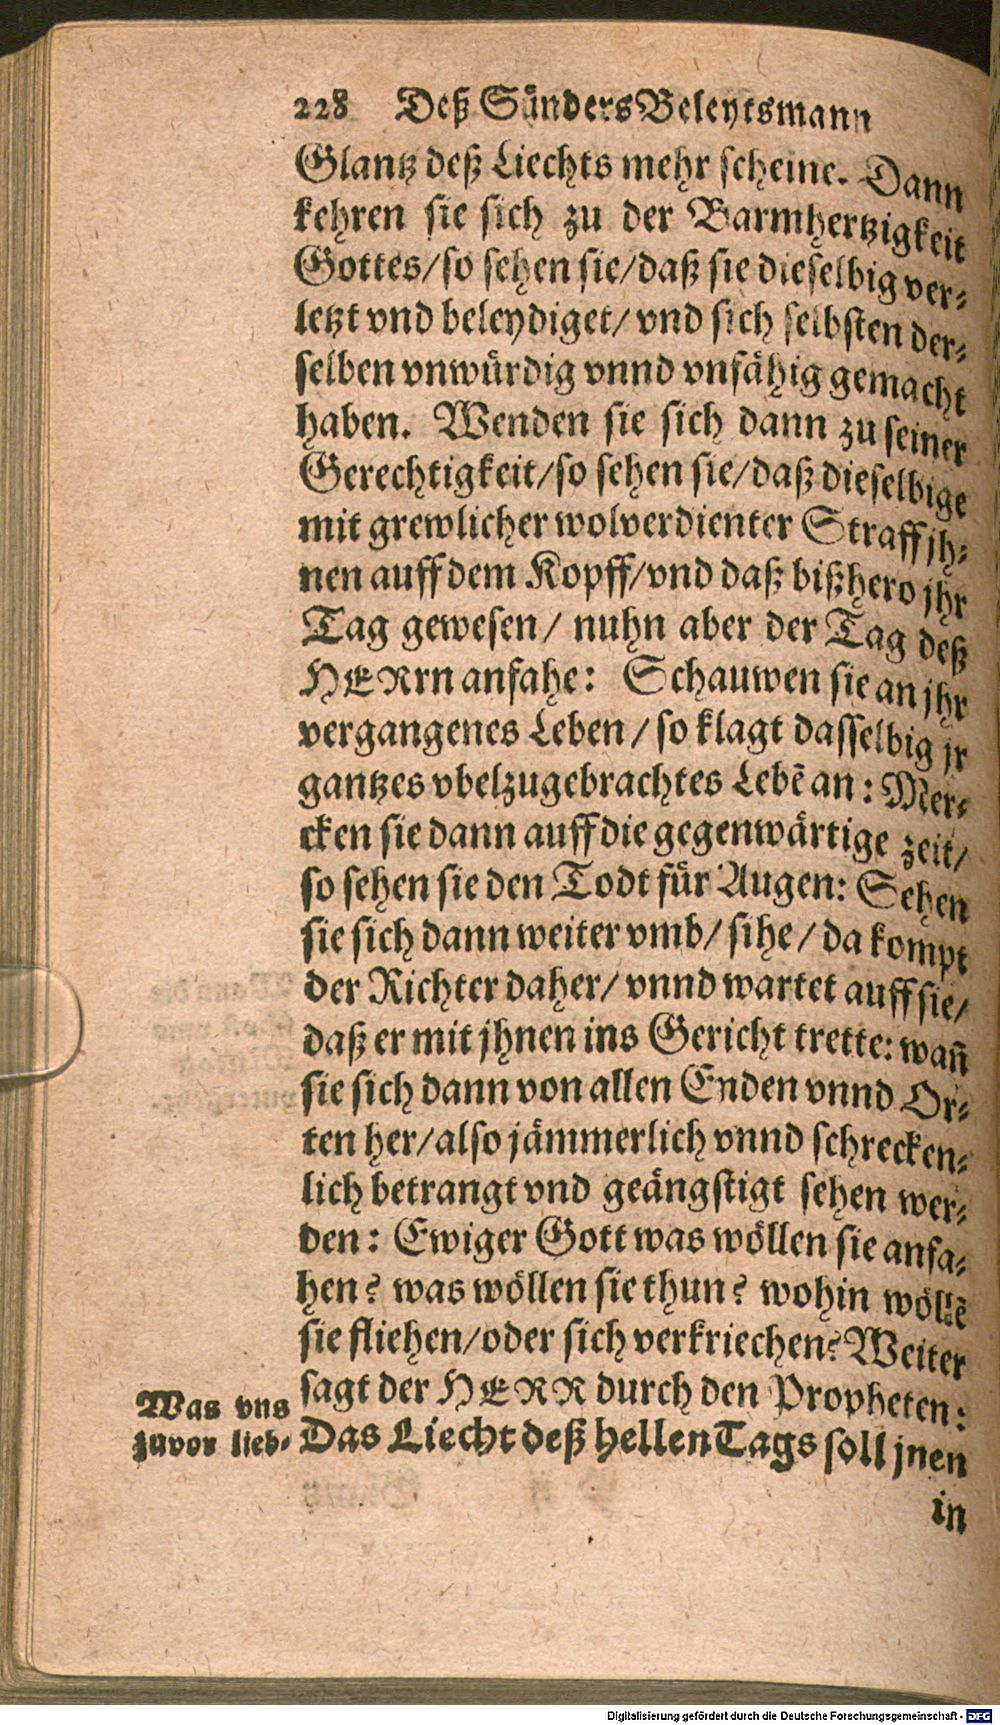 228 Deß Sünders Beleytsmann
Glantz deß Liechts mehr scheine. Dann
kehren sie sich zu der Barmhertzigkeit
Gottes/so sehen sie/daß sie dieselbig ver-
letzt vnd beleydiget/ vnd sich selbsten der-
selben vnwürdig vnnd vnfähig gemacht
haben. Wenden sie sich dann zu seiner
Gerechtigkeit/so sehen sie/daß dieselbige
mit grewlicher wolverdienter Straff jh-
nen auff dem Kopff/vnd daß bißhero jhr
Tag gewesen/ nuhn aber der Tag deß
HERrn anfahe: Schauwen sie an jhr
vergangenes Leben/so klagt dasselbig jr
gantzes vbelzugebrachtes Lebē an: Mer-
cken sie dann auff die gegenwärtige zeit/
so sehen sie den Todt für Augen: Sehen
sie sich dann weiter vmb/ sihe/ da kompt
der Richter daher/ vnnd wartet auff sie/
daß er mit jhnen ins Gericht trette: wañ
sie sich dann von allen Enden vnnd Or-
ten her/also jämmerlich vnnd schrecken-
lich betrangt vnd geängstigt sehen wer-
den: Ewiger Gott was wöllen sie anfa-
hen? was wöllen sie thun? wohin wöllē
sie fliehen/oder sich verkriechen? Weiter
sagt der HERR durch den Propheten:
Das Liecht deß hellen Tags soll jnen
in
Was vns
zuvor lieb-
Digitalisierung gefördert durch die Deutsche Forschungsgemeinschaft - DFG